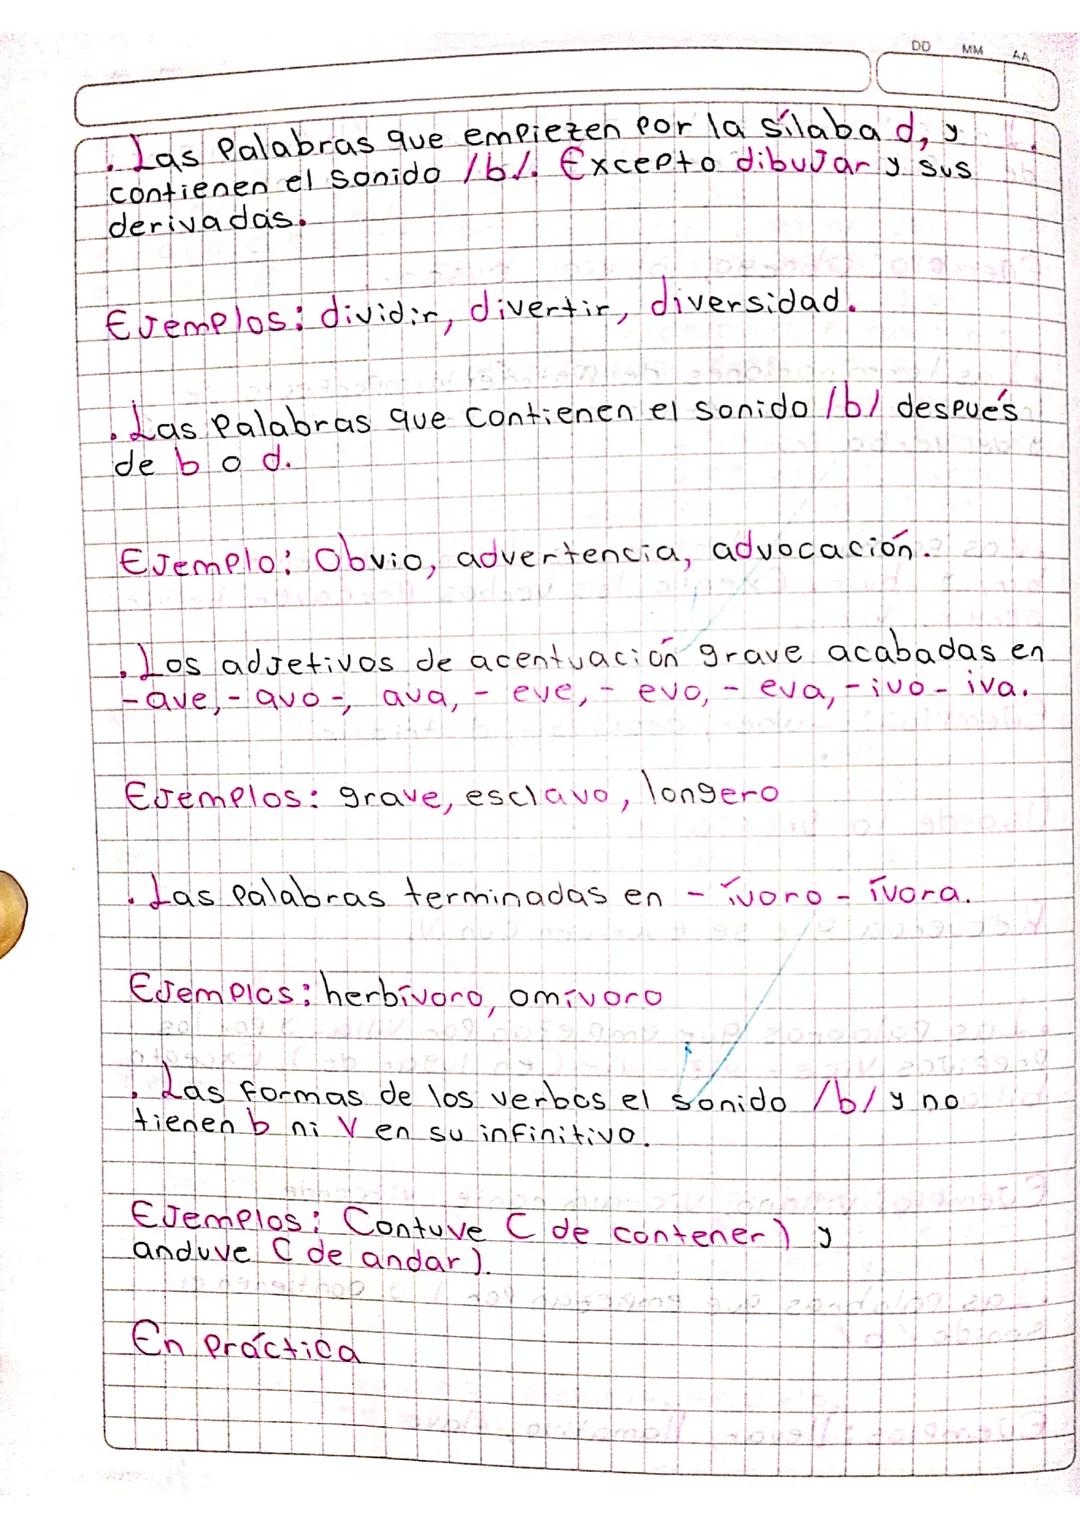 DD MM AA
. Las Palabras que empiezen por la sílaba d, y
contienen el sonido /b/. Excepto dibujar y sus
derivadas.
Ejemplos: dividir, divertir, diversidad.
. Las Palabras que contienen el sonido /b/ después
de b o d.
Ejemplo: Obvio, advertencia, advocación.
. Los adjetivos de acentuación grave acabadas en
-ave, - avo -, ava, - eve, - evo, - eva, - ivo - iva.
Ejemplos: grave, esclavo, longero
. Las palabras terminadas en - ívoro - ívora.
Ejemplos: herbívoro, omívoro
. Las formas de los verbos el sonido /b/ y no
tienen b ni V en su infinitivo.
Ejemplos: Contuve ( de contener) y
anduve ( de andar).
En práctica